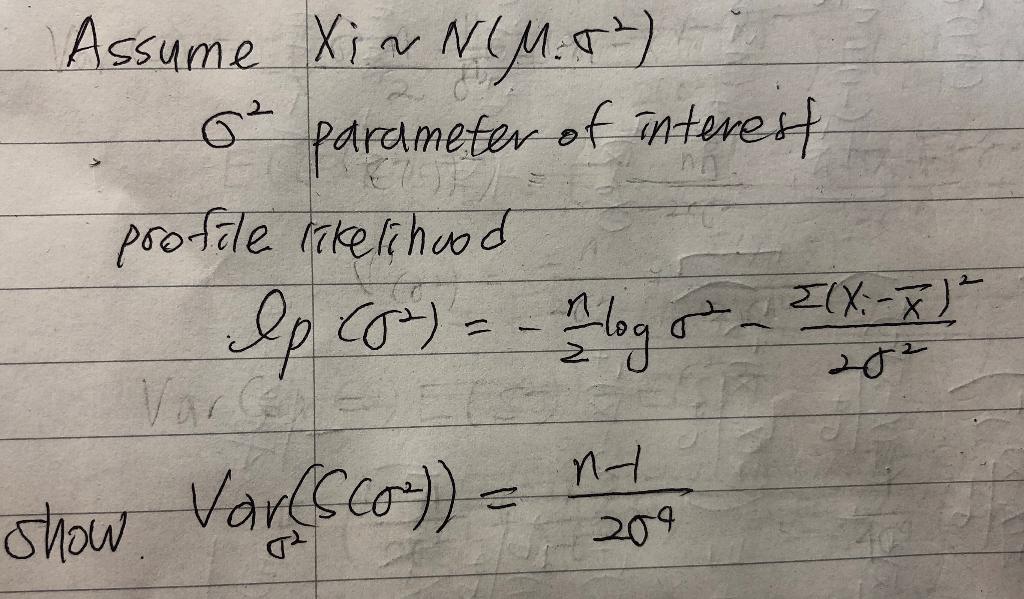 Assume Xi ~ N(μ.σ²)
σ² parameter of interest
profile likelihood
lp (σ²) = - n/2 log σ² - Σ(Xi-X̄)²/2σ²
show. Var_σ²(S(σ²)) = n-1/2σ⁴